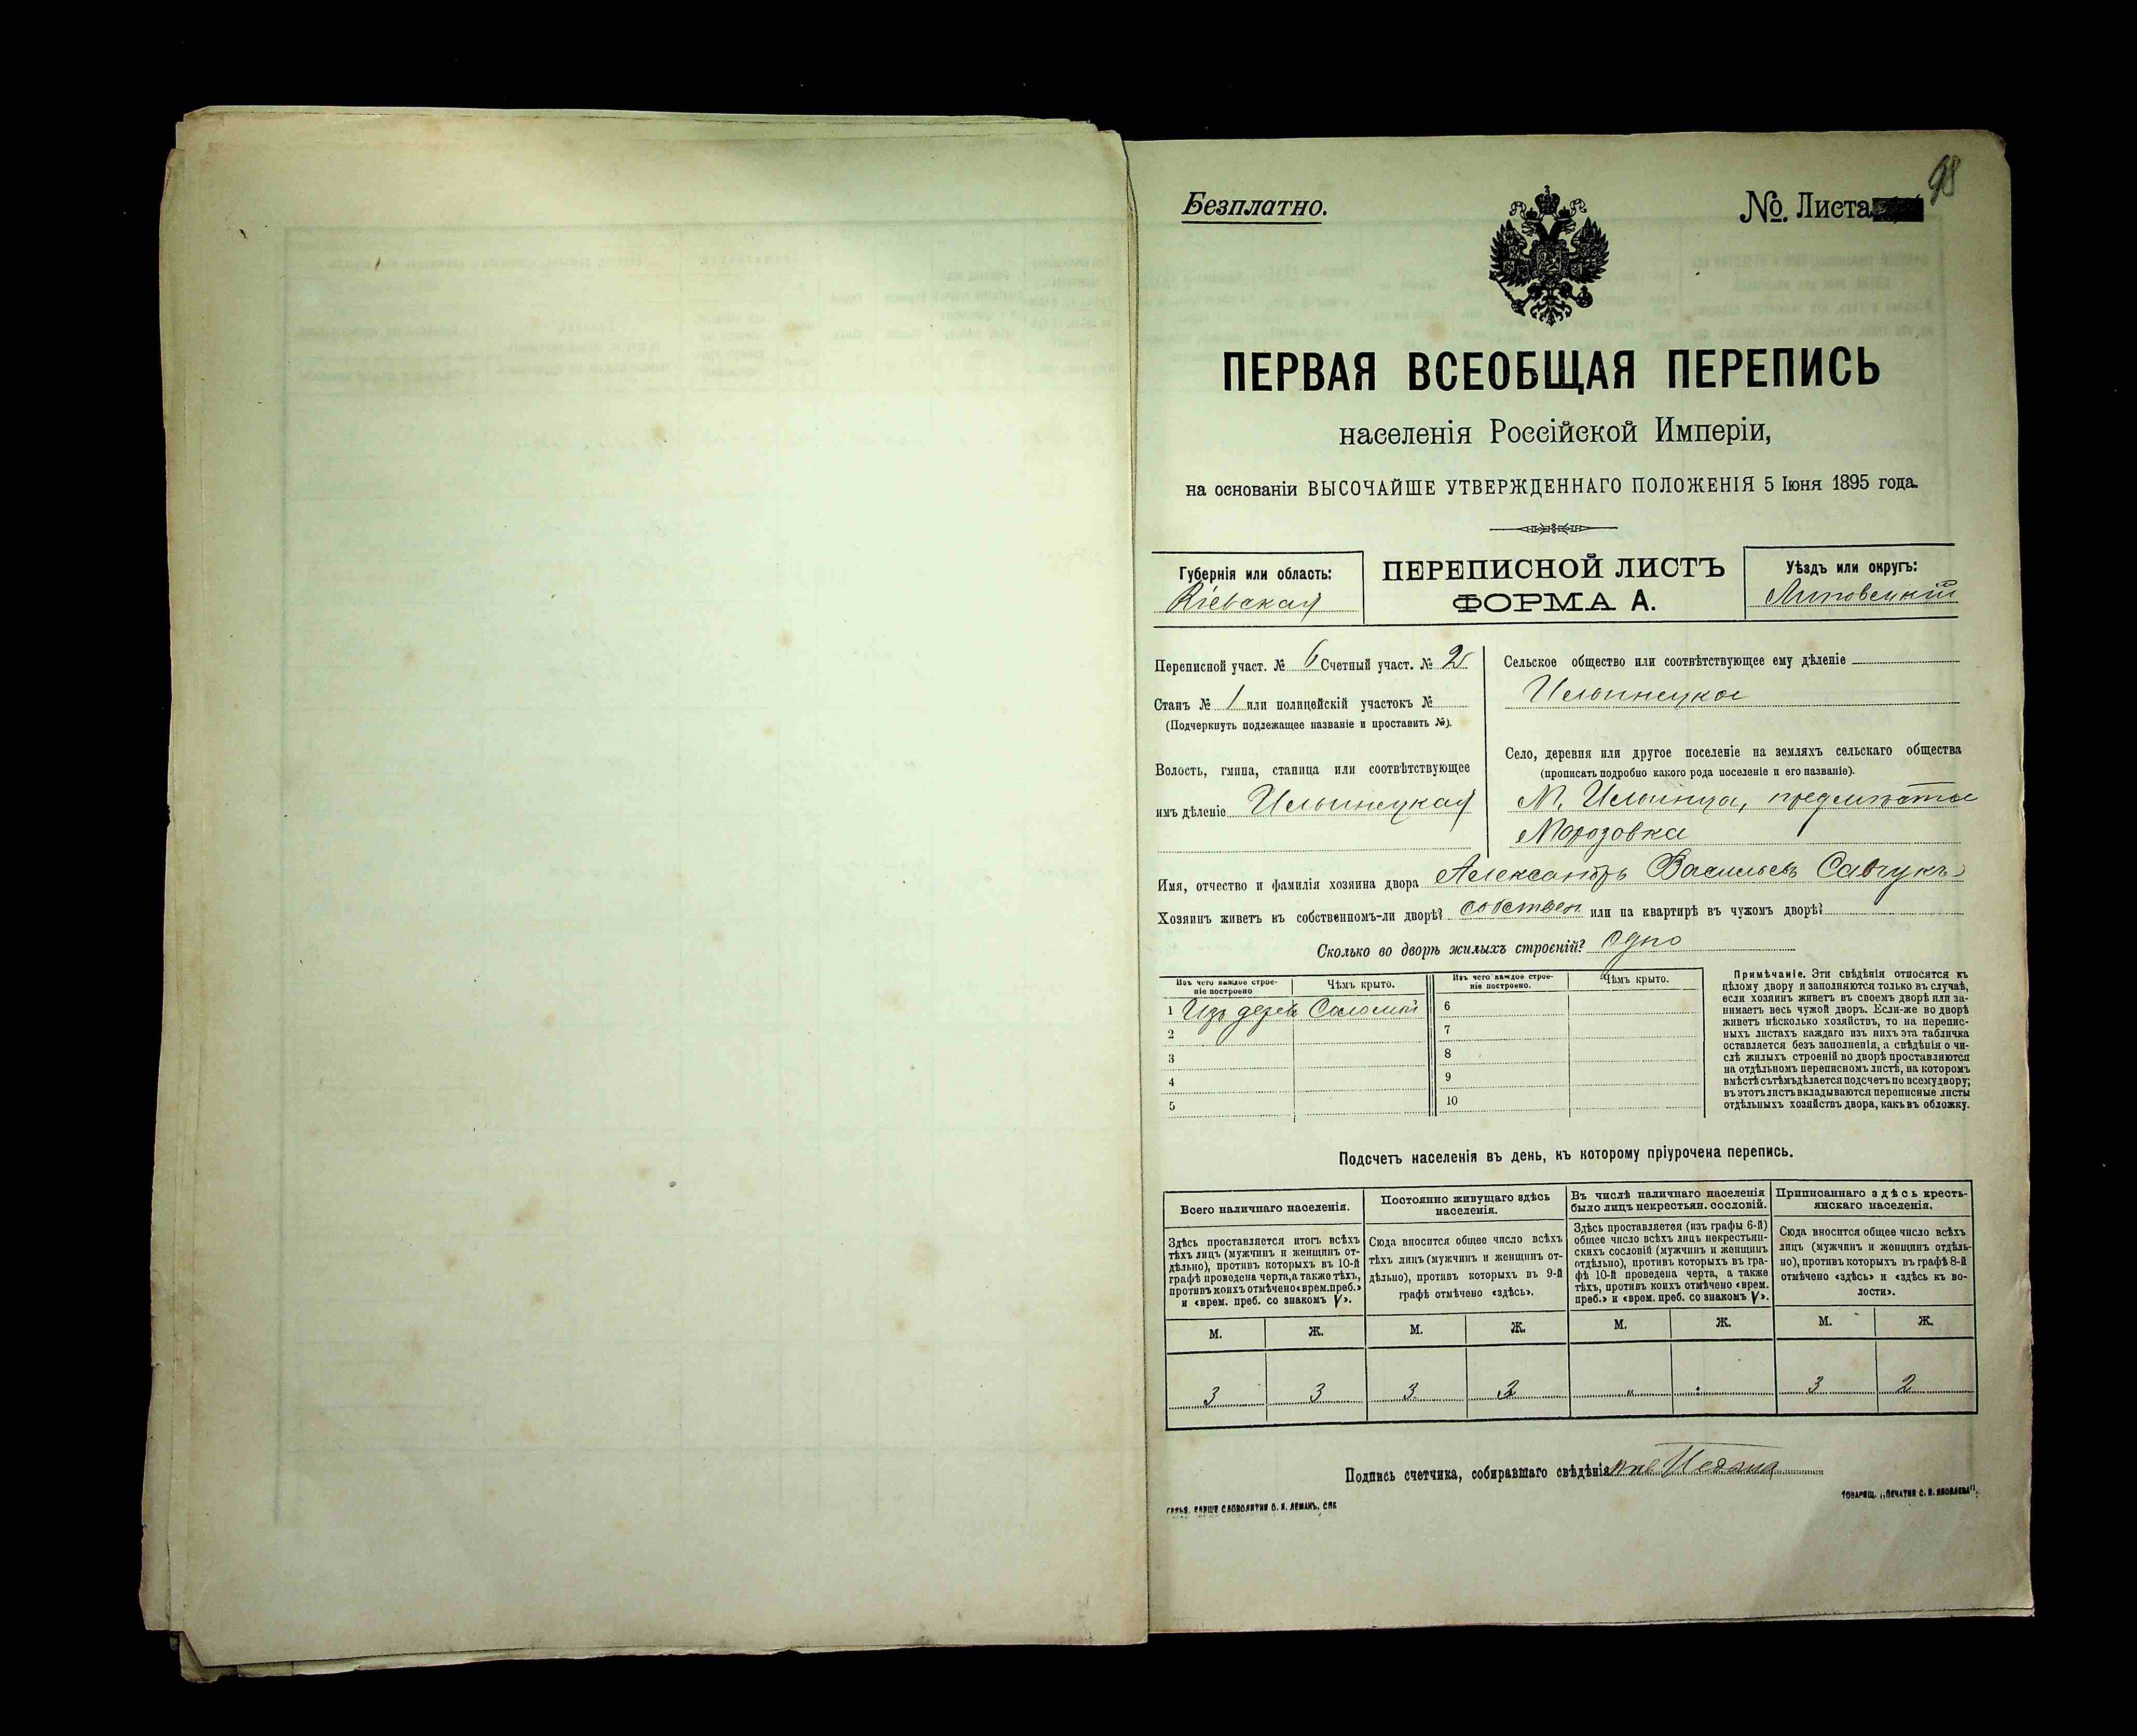 98
Безплатно.
№. Листа
ПЕРВАЯ ВСЕОБЩАЯ ПЕРЕПИСЬ
населенія Россійской Имперіи,
на основаніи ВЫСОЧАЙШЕ УТВЕРЖДЕННАГО ПОЛОЖЕНІЯ 5 Іюня 1895 года.
Губернія или область:
Кіевская
ПЕРЕПИСНОЙ ЛИСТЪ
ФОРМА А.
Уѣздъ или округъ:
Липовецкій
Переписной участ. № 6 Счетный участ. № 2
Станъ № 1 или полицейскій участокъ №
(Подчеркнуть подлежащее названіе и проставить №).
Волость, гмина, станица или соотвѣтствующее
имъ дѣленіе Ильинецкая
Сельское общество или соотвѣтствующее ему дѣленіе
Ильинецкое
Село, деревня или другое поселеніе на земляхъ сельскаго общества
(прописать подробно какого рода поселеніе и его названіе).
М. Ильинца, предмѣстье
Морозовка
Имя, отчество и фамилія хозяина двора Александръ Васильевъ Савчукъ
Хозяинъ живетъ въ собственномъ-ли дворѣ? собствен или на квартирѣ въ чужомъ дворѣ?
Сколько во дворѣ жилыхъ строеній? Одно
Изъ чего каждое строе-
ніе построено
Чѣмъ крыто.
Изъ чего каждое строе-
ніе построено.
Чѣмъ крыто.
1 Изъ дерев Соломой
2
3
4
5
6
7
8
9
10
Примѣчаніе. Эти свѣдѣнія относятся къ
цѣлому двору и заполняются только въ случаѣ,
если хозяинъ живетъ въ своемъ дворѣ или за-
нимаетъ весь чужой дворъ. Если-же во дворѣ
живетъ нѣсколько хозяйствъ, то на перепис-
ныхъ листахъ каждаго изъ нихъ эта табличка
оставляется безъ заполненія, а свѣдѣнія о чи-
слѣ жилыхъ строеній во дворѣ проставляются
на отдѣльномъ переписномъ листѣ, на которомъ
вмѣстѣ съ тѣмъ дѣлается подсчетъ по всему двору;
въ этотъ листъ вкладываются переписные листы
отдѣльныхъ хозяйствъ двора, какъ въ обложку.
Подсчетъ населенія въ день, къ которому пріурочена перепись.
Всего наличнаго населенія.
Здѣсь проставляется итогъ всѣхъ
тѣхъ лицъ (мужчинъ и женщинъ от-
дѣльно), противъ которыхъ въ 10-й
графѣ проведена черта, а также тѣхъ,
противъ коихъ отмѣчено «врем. преб.»
и «врем. преб. со знакомъ V».
Постоянно живущаго здѣсь
населенія.
Сюда вносится общее число всѣхъ
тѣхъ лицъ (мужчинъ и женщинъ от-
дѣльно), противъ которыхъ въ 9-й
графѣ отмѣчено «здѣсь».
Въ числѣ наличнаго населенія
было лицъ некрестьян. сословій.
Здѣсь проставляется (изъ графы 6-й)
общее число всѣхъ лицъ некрестьян-
скихъ сословій (мужчинъ и женщинъ
отдѣльно), противъ которыхъ въ гра-
фѣ 10-й проведена черта, а также
тѣхъ, противъ коихъ отмѣчено «врем.
преб.» и «врем. преб. со знакомъ V».
Приписаннаго здѣсь кресть-
янскаго населенія.
Сюда вносится общее число всѣхъ
лицъ (мужчинъ и женщинъ отдѣль-
но), противъ которыхъ въ графѣ 8-й
отмѣчено «здѣсь» и «здѣсь къ во-
лости».
М. Ж. М. Ж. М. Ж. М. Ж.
3 3 3 2 " " 3 2
Подпись счетчика, собиравшаго свѣдѣнія
СЛОВОЛИТНИ О. И. ЛЕМАНЪ, СПБ
ТОВАРИЩ. „ПЕЧАТНЯ С. П. ЯКОВЛЕВА".